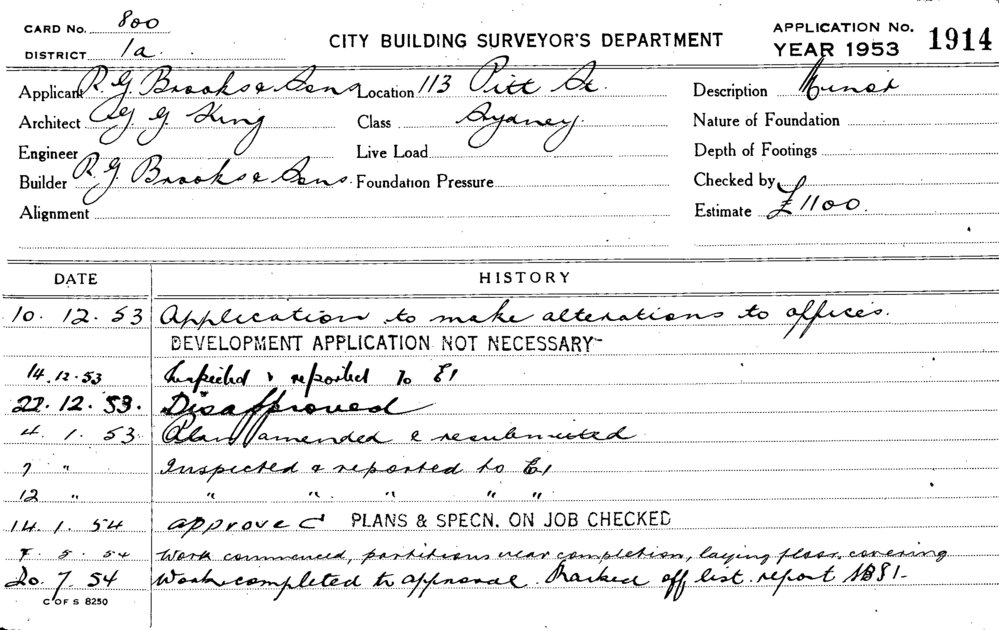 CARD No. 800
DISTRICT 1a
CITY BUILDING SURVEYOR'S DEPARTMENT
APPLICATION No. 1914
YEAR 1953
Applicant R. G. Brooks & Sons Location 113 Pitt St. Description Minor
Architect G. King Class Sydney. Nature of Foundation
Engineer Live Load Depth of Footings
Builder R. G. Brooks & Sons. Foundation Pressure Checked by
Alignment Estimate £1100.
DATE HISTORY
10. 12. 53 Application to make alterations to offices.
DEVELOPMENT APPLICATION NOT NECESSARY
14.12.53 Inspected & reported to E1
22.12.53. Disapproved
4. 1. 53 Plan amended & resubmitted
7 " Inspected & reported to E1
12 " " " " " "
14. 1. 54 approved PLANS & SPECN. ON JOB CHECKED
7. 5. 54 Work commenced, partitions near completion, laying floor covering
20. 7. 54 Work completed to approval. Marked off list. report
C OF S 8250